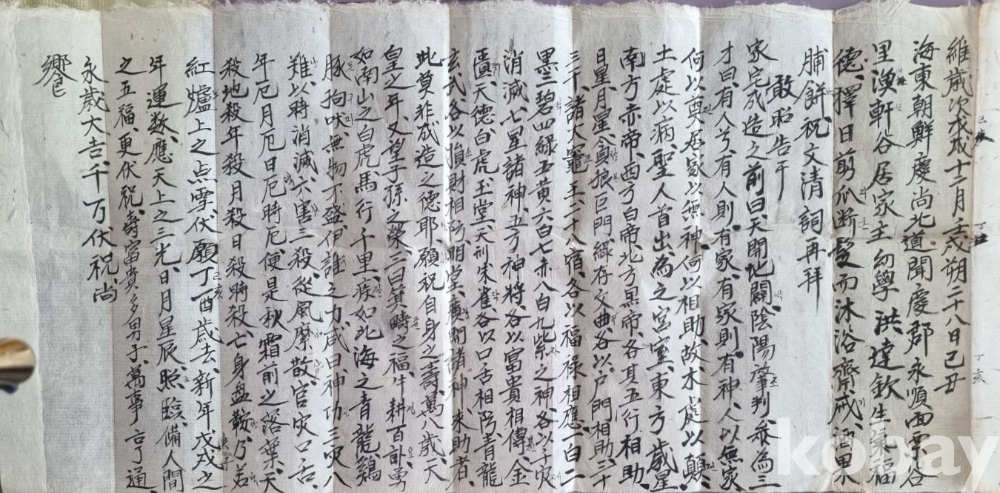 維歲次戊戌十二月壬戌朔二十八日己丑
海東朝鮮慶尚北道聞慶郡永順面 谷
里漁軒谷居家主幼學洪達欽生氣福
德擇日剪爪断髮而沐浴齊戒酒果
脯餠祝文淸詞再拜
敢昭告于
家宅成造之前曰天開地闢陰陽肇判参為三
才曰有人兮有人則有家有家則有神人以無家
何以奠居家以無神何以相助故木處以顛
土處以病聖人首出為之宮室東方歲星
南方赤帝西方白帝北方黑帝各其五行相助
日星月星貪狼巨門祿存文曲各以戶門相助三十
三千諸大竈王二十八宿各以福祿相應一白二
墨三碧四綠五黃六白七赤八白九紫之神各以 灾
消滅七星諸神五方神將各以富貴相傳金
匱天德白虎玉堂天刑朱雀各以口舌相防青龍
玄武各以損財相防明堂廣開諸神來助者
此莫非成造之德耶願祝自身之壽萬八歲天
皇之年又望子孫之榮三曰箕疇之福牛耕百畝勇
如南山之白虎馬行千里疾如北海之青龍鷄
豚狗吠無物不盛伊誰之力咸曰神功三灾八
難以時消滅六害三殺從風摩散官灾口舌
年厄月厄日厄時厄便是秋霜前之落葉天
殺地殺年殺月殺日殺時殺亡身盤鞍方若
紅爐上之点雪伏願丁酉歲去新年戊戌之
年運数應天上之三光日月星辰照臨備人間
之五福更伏祝壽富貴多男子萬事亨通
永歲大吉千万伏祝尚
饗
kobay